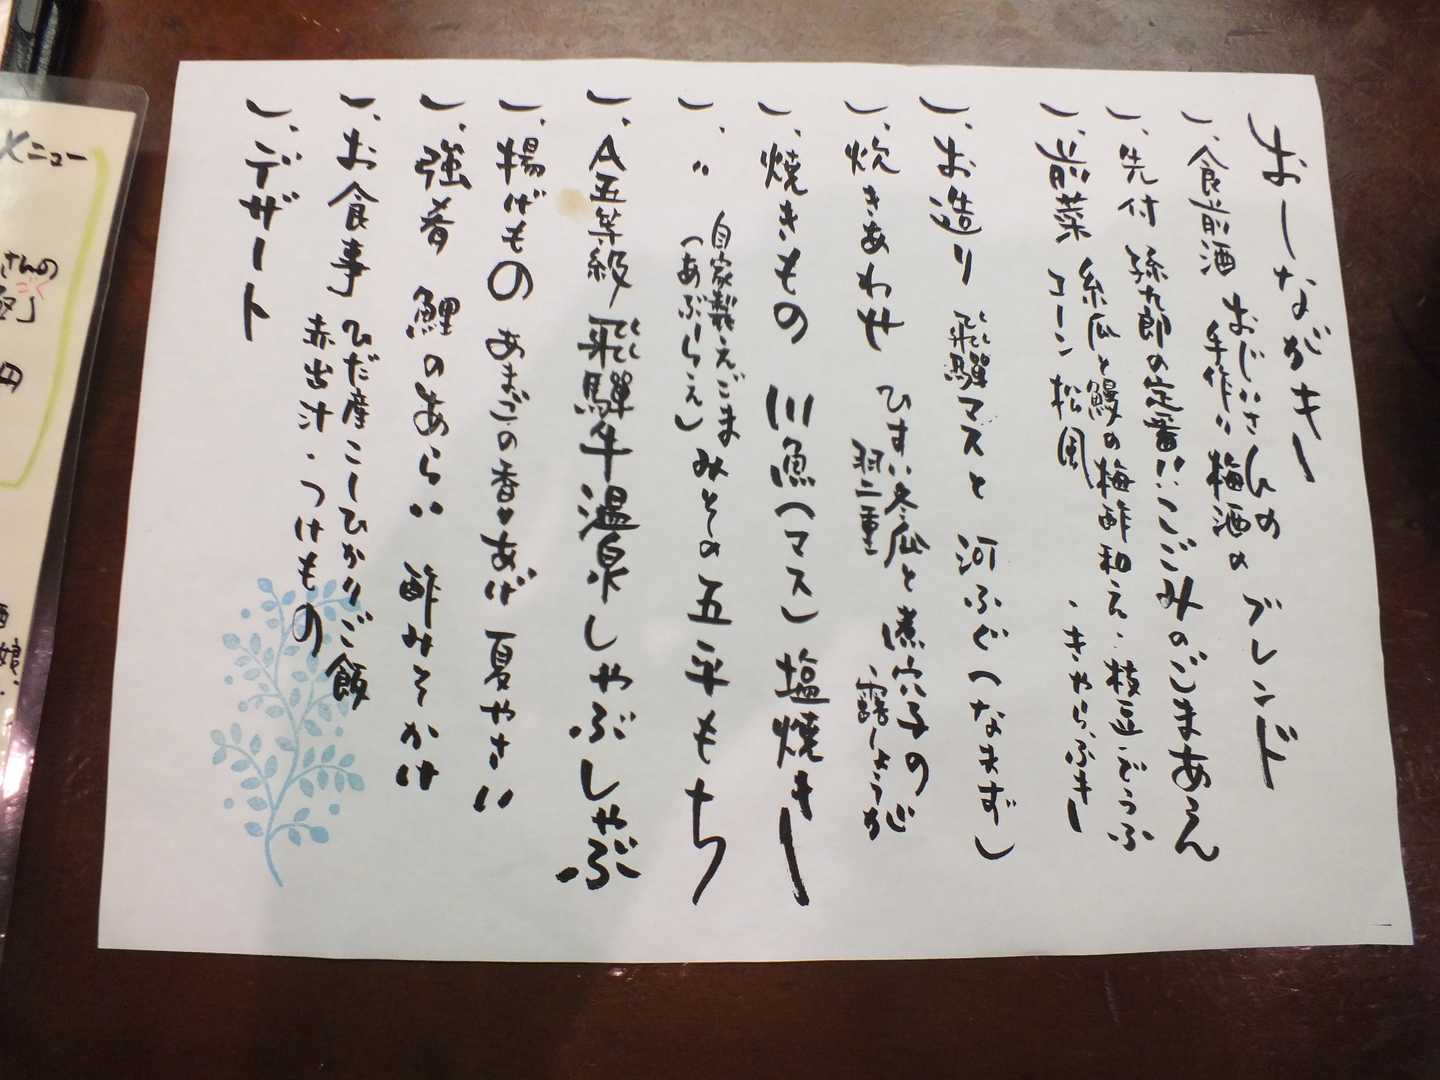 おしながき
一、食前酒 おじいさんの
手作り梅酒の ブレンド
一、先付 孫九郎の定番!!こごみのごまあえ
一、前菜 糸瓜と鰻の梅酢和え・枝豆どうふ
コーン松風 ・きゃらぶき
一、お造り 飛騨マスと 河ふぐ(なまず)
一、炊きあわせ ひすい冬瓜と煮穴子の
羽二重 ・露しょうが
一、焼きもの 川魚(マス)塩焼き
一、〃 自家製えごま
(あぶらえ) みその五平もち
一、A五等級 飛騨牛温泉しゃぶしゃぶ
一、揚げもの あまごの香りあげ 夏やさい
一、強肴 鯉のあらい 酢みそかけ
一、お食事 ひだ産こしひかりご飯
赤出汁・つけもの
一、デザート
メニュー
さんの
ごく
円
娘